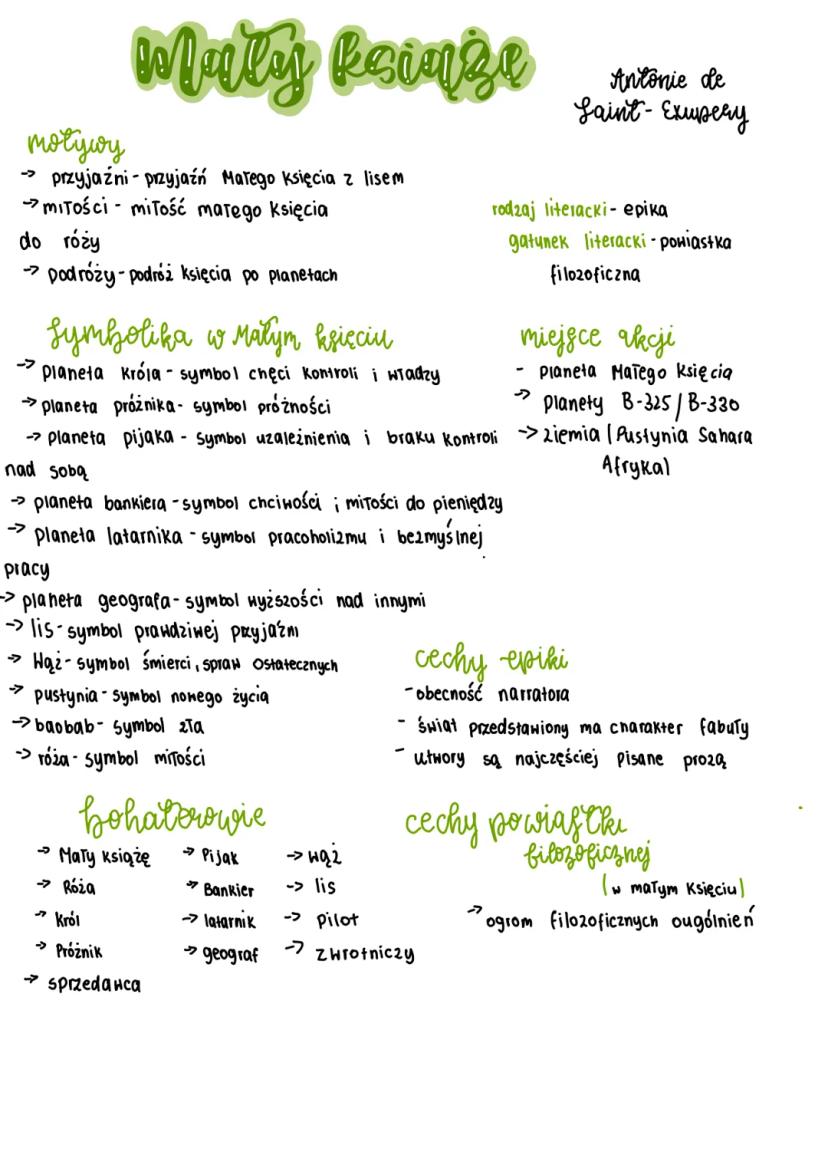 Mały książę
Antonie de
Saint-Exupery
motywy
→ przyjaźni - przyjaźń Małego Księcia z lisem
→ miłości - miłość małego Księcia
do róży
→ podróży - podróż księcia po planetach
rodzaj literacki - epika
gatunek literacki - powiastka
filozoficzna
Symbolika w Małym księciu
→ planeta króla - symbol chęci kontroli i władzy
→ planeta próżnika - symbol próżności
→ planeta pijaka - symbol uzależnienia i braku kontroli
nad sobą
→ planeta bankiera - symbol chciwości i miłości do pieniędzy
→ planeta latarnika - symbol pracoholizmu i bezmyślnej
pracy
→ planeta geografa - symbol wyższości nad innymi
→ lis - symbol prawdziwej przyjaźni
→ Wąż - symbol śmierci, spraw ostatecznych
→ pustynia - symbol nowego życia
→ baobab - symbol zła
→ róża - symbol miłości
miejsce akcji
- planeta Małego Księcia
→ planety B-325 / B-330
→ ziemia (Pustynia Sahara
Afryka)
cechy epiki
- obecność narratora
- świat przedstawiony ma charakter fabuły
- utwory są najczęściej pisane prozą
bohaterowie
→ Mały książę → Pijak → wąż
→ Róża → Bankier → lis
→ Król → latarnik → pilot
→ Próżnik → geograf → zwrotniczy
→ sprzedawca
cechy powiastki
filozoficznej
(w małym Księciu)
→ ogrom filozoficznych ougólnień